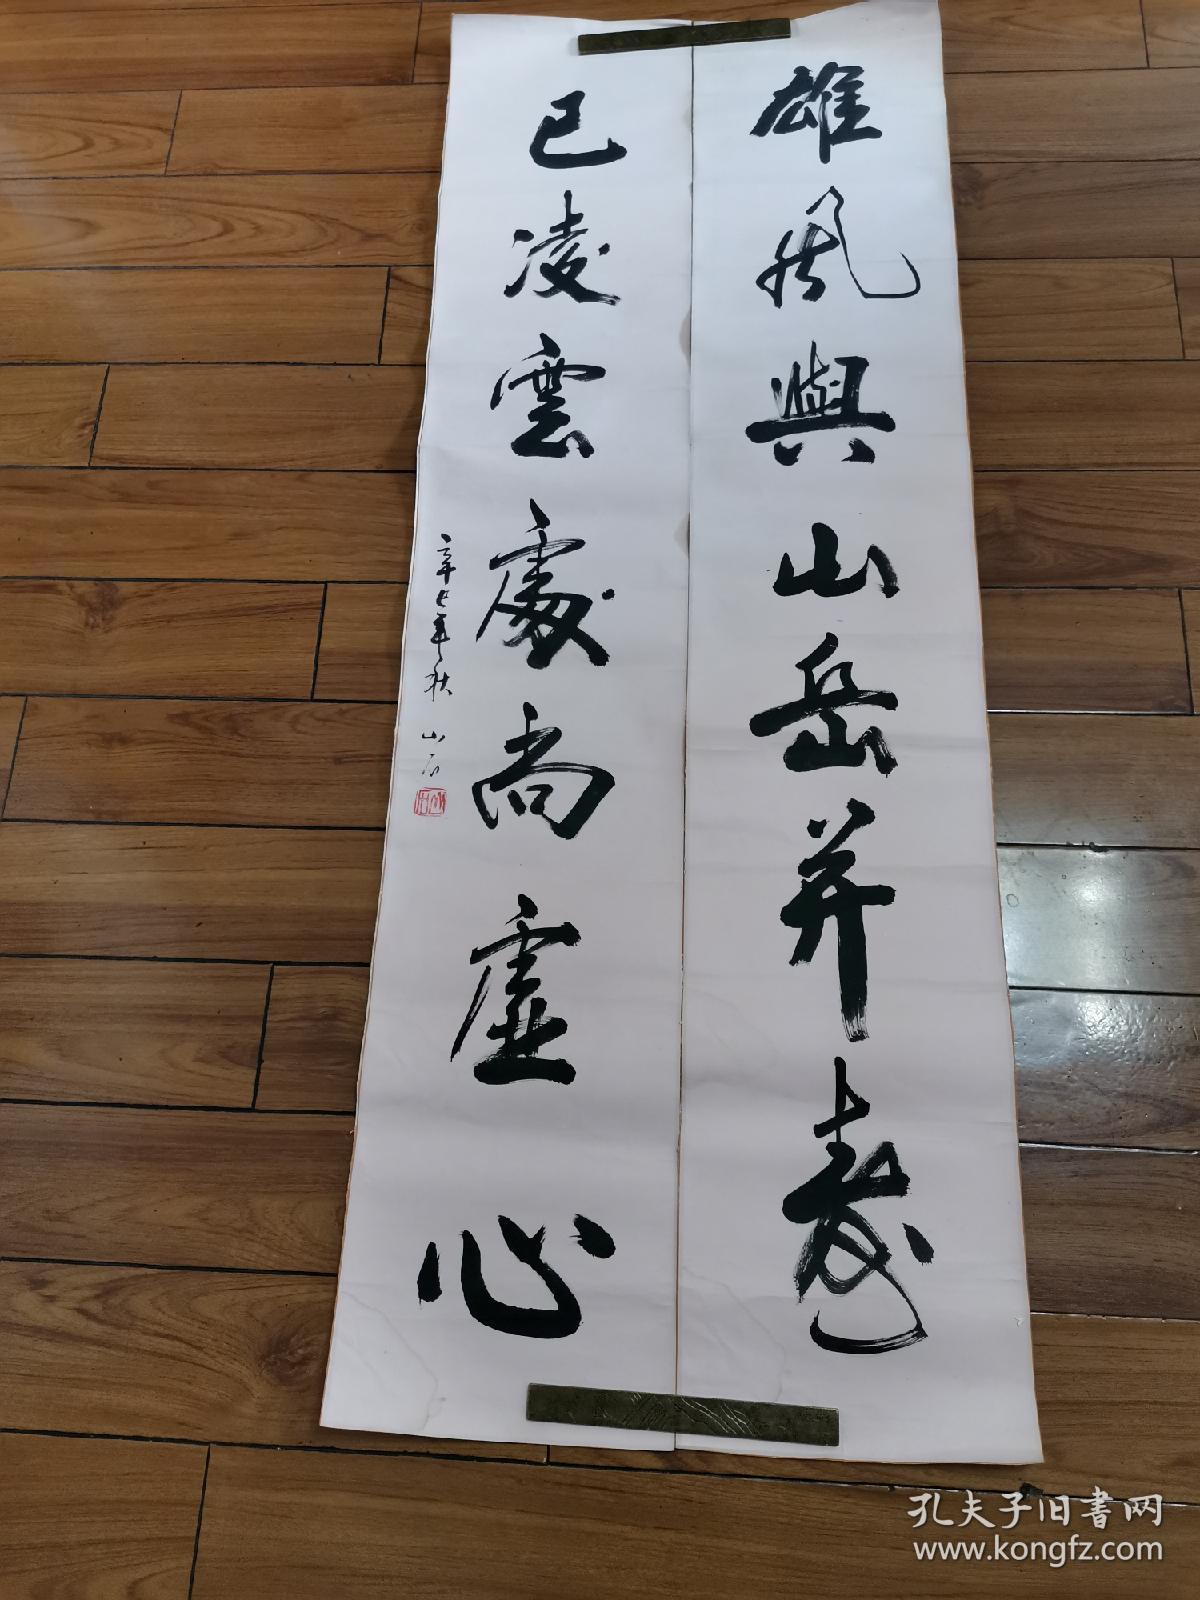 雄風與山岳并壽
已凌雲處尚虛心
辛巳年秋 山石
孔夫子旧書网
www.kongfz.com